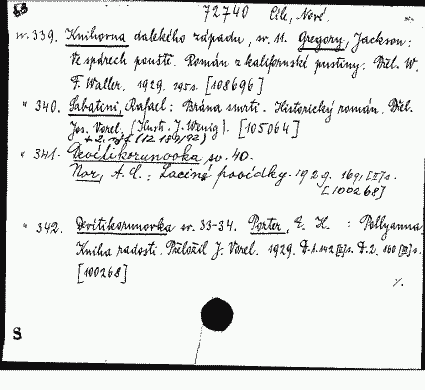 72740 Cik, Nové.
sv. 339. Knihovna dalekého západu, sv. 11. Gregory, Jackson:
Ve spárech pouště. Román z kalifornské pustiny. Přel. W.
F. Waller. 1929. 195 s. [108696]
" 340. Sabatini, Rafael: Brána smrti. Historický román. Přel.
Jos. Vorel. (Ilustr. J. Wenig). [105064]
" 341. Devítikorunovka sv. 40.
Nor, A. C.: Laciné povídky. 1929. 169, [II] s.
[100268]
" 342. Devítikorunovka sv. 33-34. Porter, E. H. : Pollyanna
Kniha radosti. Přeložil J. Vorel. 1929. D. 1. 142 [II] s. D. 2. 160 [III] s.
[100268]
%.
S